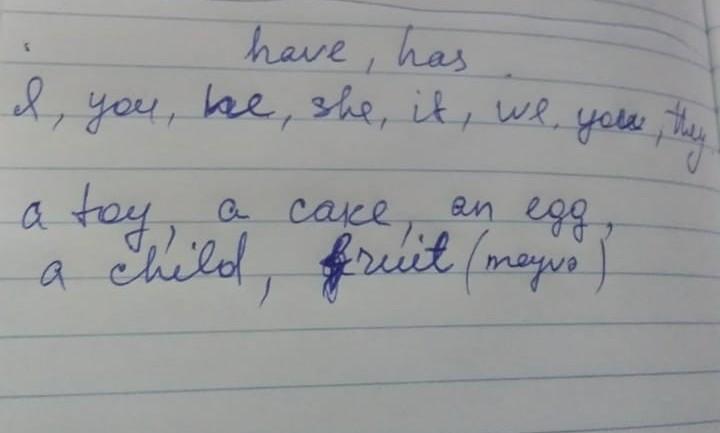 have, has
I, you, he, she, it, we, you, they
a toy, a cake, an egg,
a child, fruit (meyvə)